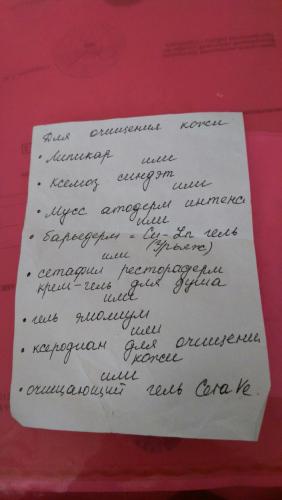 Для очищения кожи
• Липикар или
• Ксемоз синдэт или
• Мусс атодерм интенс или
• барьедерм = Cu-Zn гель
или (Урьяж)
• сетафил ресторадерм
крем-гель для душа
или
• гель ямолиум
или
• ксеродиан для очищени
кожи
или
• очищающий гель CeraVe.